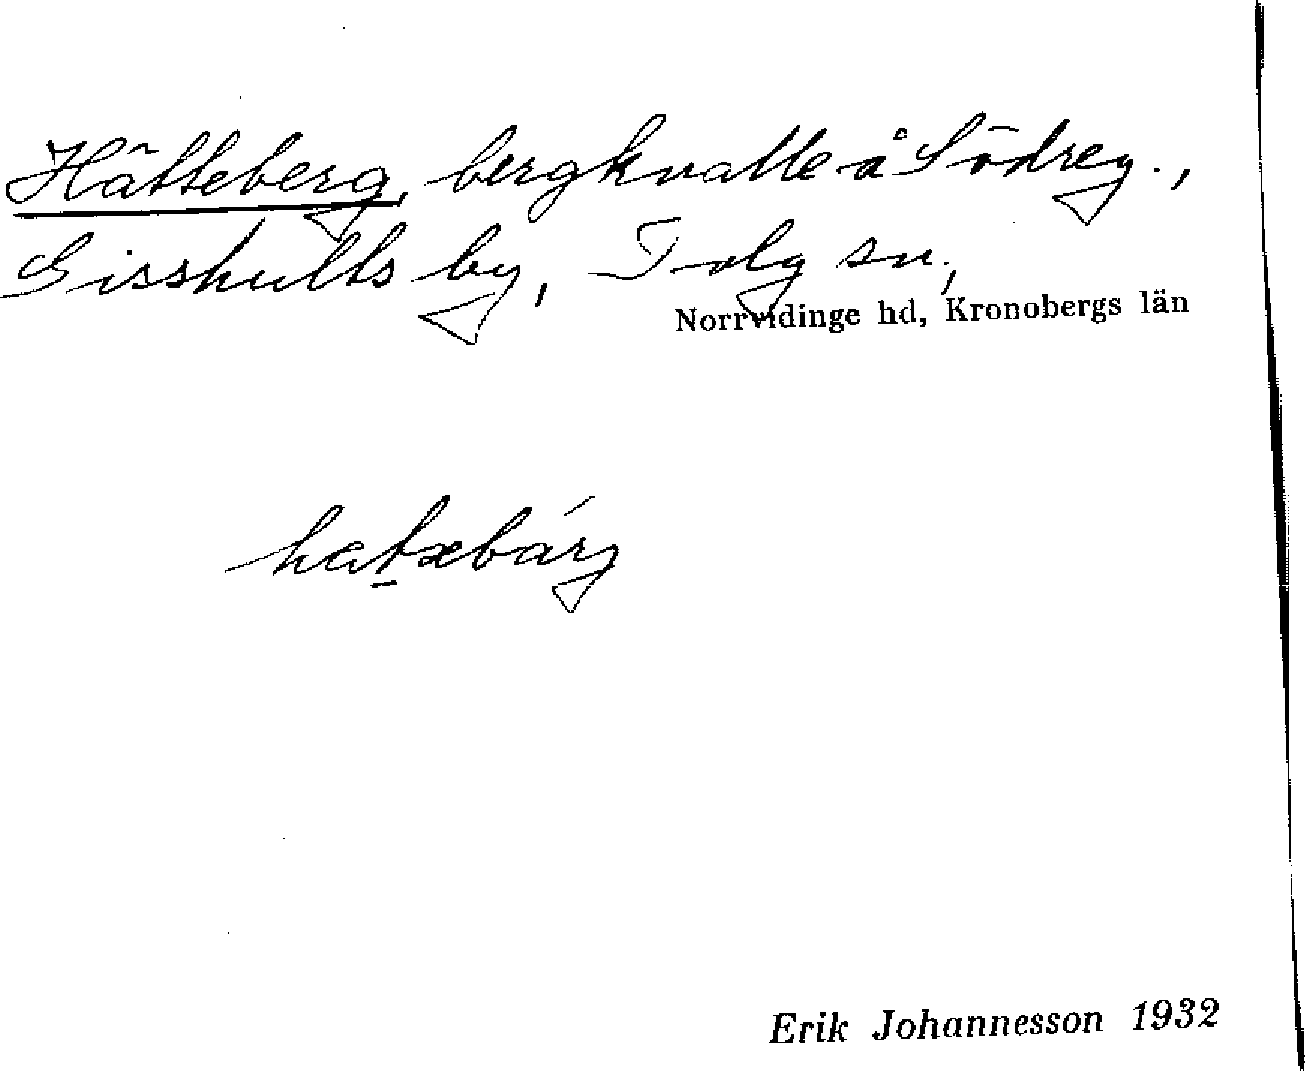 Hätteberg, bergknalle å Södreg.,
Gisshults by, Tolg sn,
Norrvidinge hd, Kronobergs län
hatæbárg
Erik Johannesson 1932